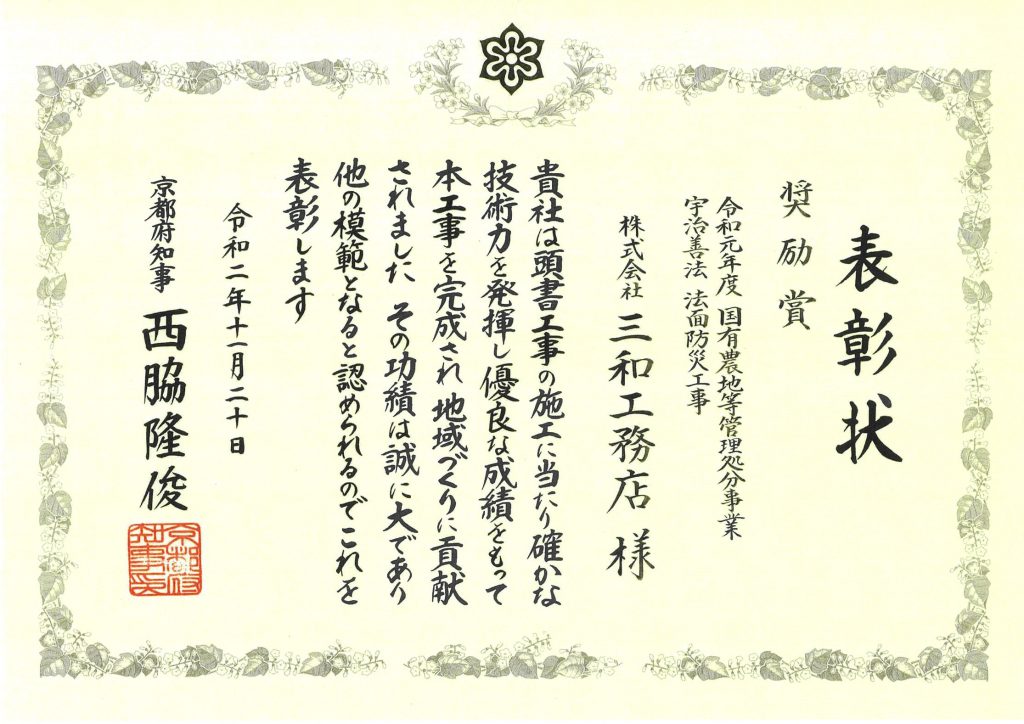 表彰状
奨励賞
令和元年度 国有農地等管理処分事業
宇治善法 法面防災工事
株式会社 三和工務店 様
貴社は頭書工事の施工に当たり確かな
技術力を発揮し優良な成績をもって
本工事を完成され地域づくりに貢献
されました その功績は誠に大であり
他の模範となると認められるのでこれを
表彰します
令和二年十一月二十日
京都府知事 西脇隆俊
京都府
知事印